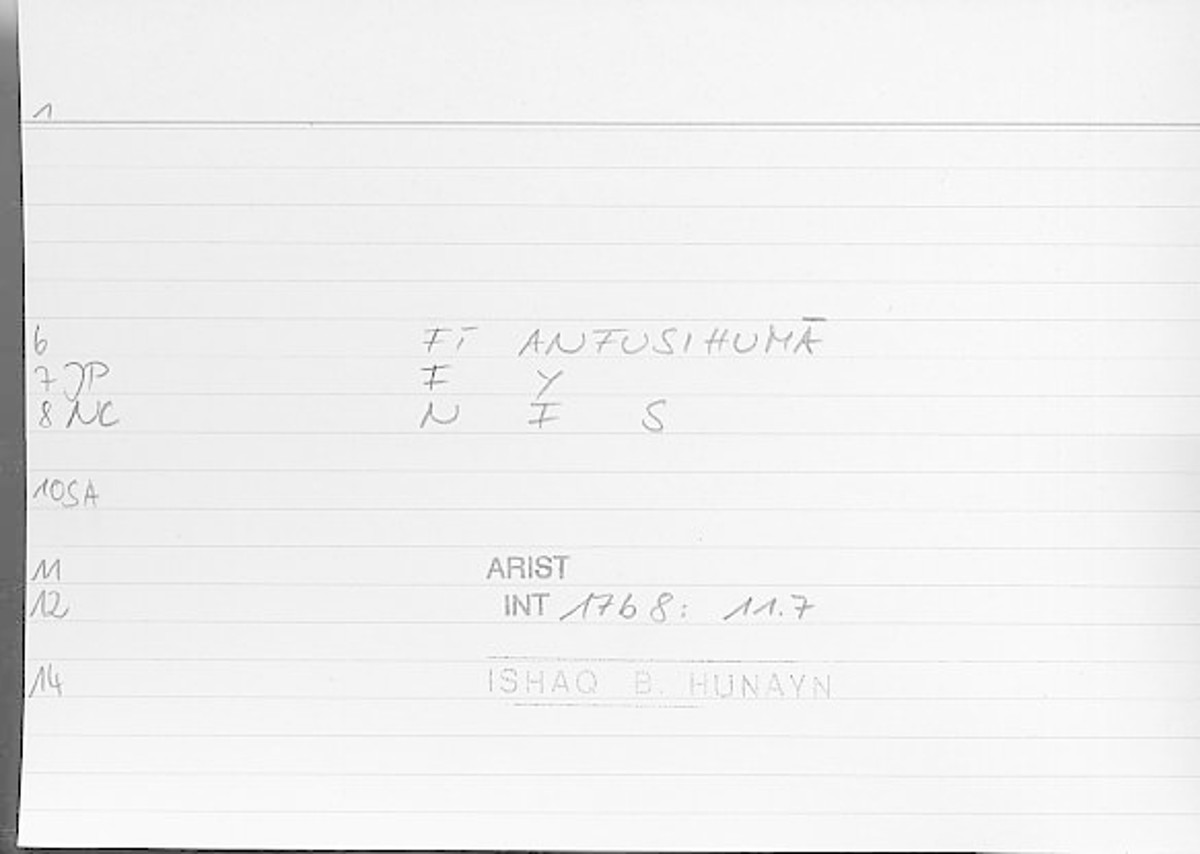 1
6 FĪ ANFUSIHUMĀ
7 JP F Y
8 NC N F S
10 SA
11 ARIST
12 INT 1768: 11.7
14 ISHAQ B. HUNAYN